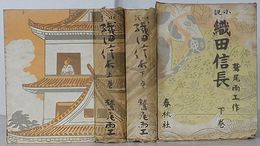 小説
織田信長
鷲尾雨工作
下巻
春秋社
小説
織田信長
下巻
鷲尾雨工
小説
織田信長
上巻
鷲尾雨工